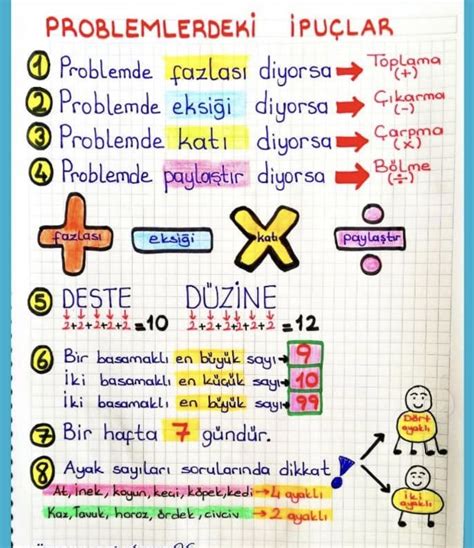 PROBLEMLERDEKİ İPUÇLAR
1 Problemde fazlası diyorsa → Toplama (+)
2 Problemde eksiği diyorsa → Çıkarma (-)
3 Problemde katı diyorsa → Çarpma (x)
4 Problemde paylaştır diyorsa → Bölme (÷)
fazlası eksiği katı paylaştır
5 DESTE DÜZİNE
2+2+2+2+2=10 2+2+2+2+2+2=12
6 Bir basamaklı en büyük sayı→ 9
İki basamaklı en küçük sayı→ 10
İki basamaklı en büyük sayı→ 99
7 Bir hafta 7 gündür.
8 Ayak sayıları sorularında dikkat!
Dört ayaklı
At, inek, koyun, keçi, köpek, kedi→4 ayaklı
Kaz, Tavuk, horoz, ördek, civciv→2 ayaklı
İki ayaklı